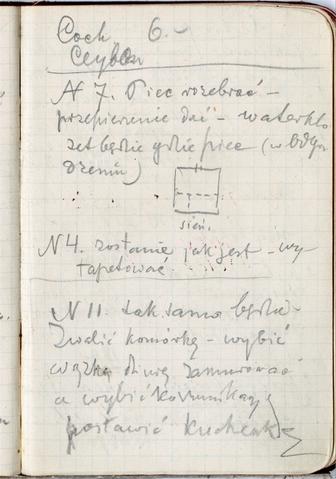 Coch 6.-
Ceylon
N 7. Piec rozebrać -
przepierzenie dać - waterklo
zet będzie gdzie piec (w ogro
dzeniu)
sień.
N 4. zostanie jak jest - wy
tapetować
N 11. tak samo będzie
zwalić komórkę - wybić
wązką dziurę zamurować
a wybić komunikację
postawić kuchenkę